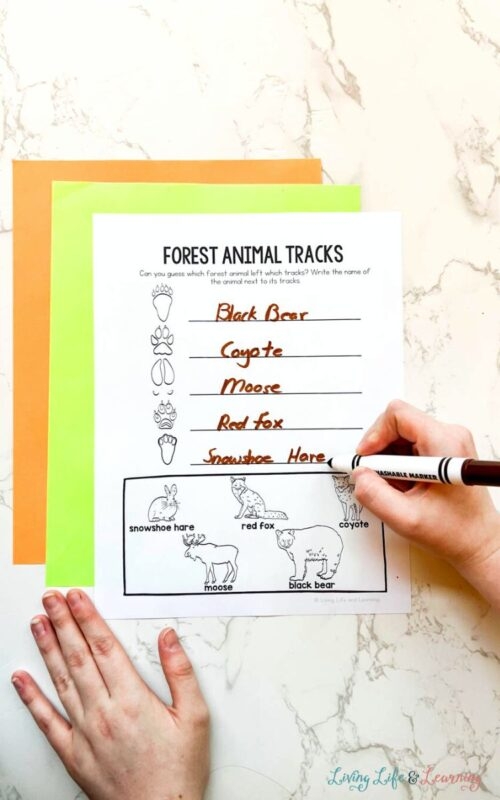 FOREST ANIMAL TRACKS
Can you guess which forest animal left which tracks? Write the name of
the animal next to its tracks.
Black Bear
Coyote
Moose
Red fox
Snowshoe Hare
WASHABLE MARKER
snowshoe hare
red fox
coyote
moose
black bear
© Living Life and Learning
Living Life & Learning